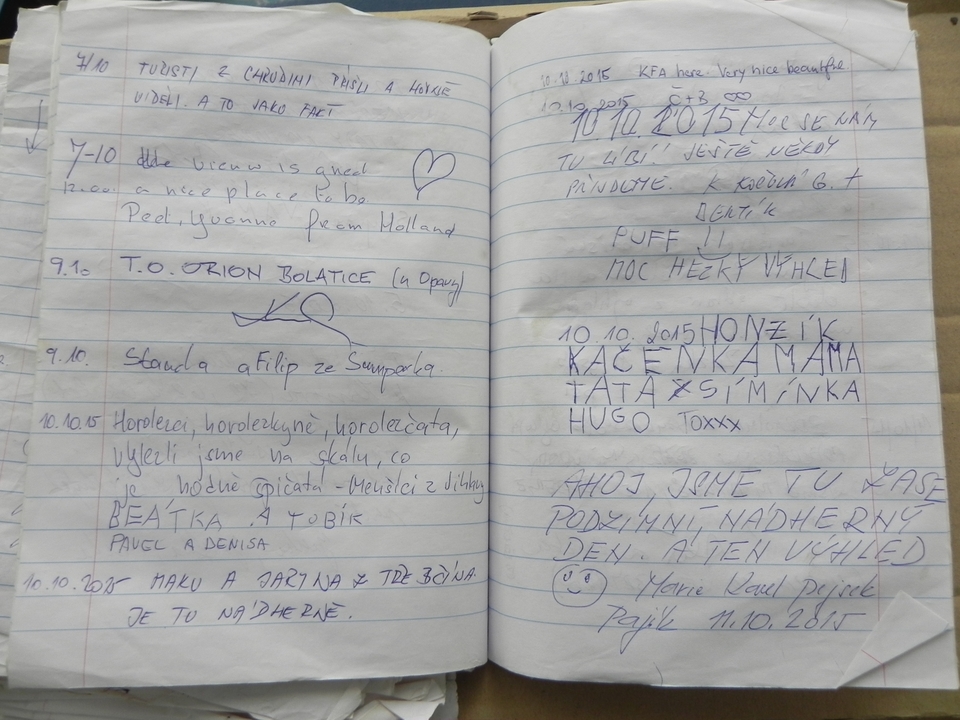 7/10 TURISTI Z CHRUDIMI PŘIŠLI A
VIDĚLI. A TO JAKO FAKT
7-10 view is
a nice place to be
Peet, Yvonne from Holland
9.10 T.O. ORION BOLATICE (u Opavy)
9.10. Standa a Filip ze Šumperka
10.10.15 Horolezci, horolezkyně, horolezčata,
vylezli jsme na skálu, co
je hodně špičatá - Menšíci z
BEÁTKA A TOBÍK
PAVEL A DENISA
10.10.2015 A Z TŘEBČÍNA
JE TU NÁDHERNĚ.
10.10.2015 KFA here. Very nice
10.10.2015 Č+B ∞
10.10.2015 MOC SE NÁM
TU LÍBÍ! JEŠTĚ NĚKDY
PŘIJDEME. K G. +
BERTÍK
PUFF !!
MOC HEZKÝ VÝHLED
10.10.2015 HONZÍK
KAČENKA MÁMA
TÁTA SIMÍNKA
HUGO TOXXX
AHOJ, JSME TU ZASE
PODZIMNÍ, NÁDHERNÝ
DEN. A TEN VÝHLED
Marie Karel Pejsek
Pajík 11.10.2015